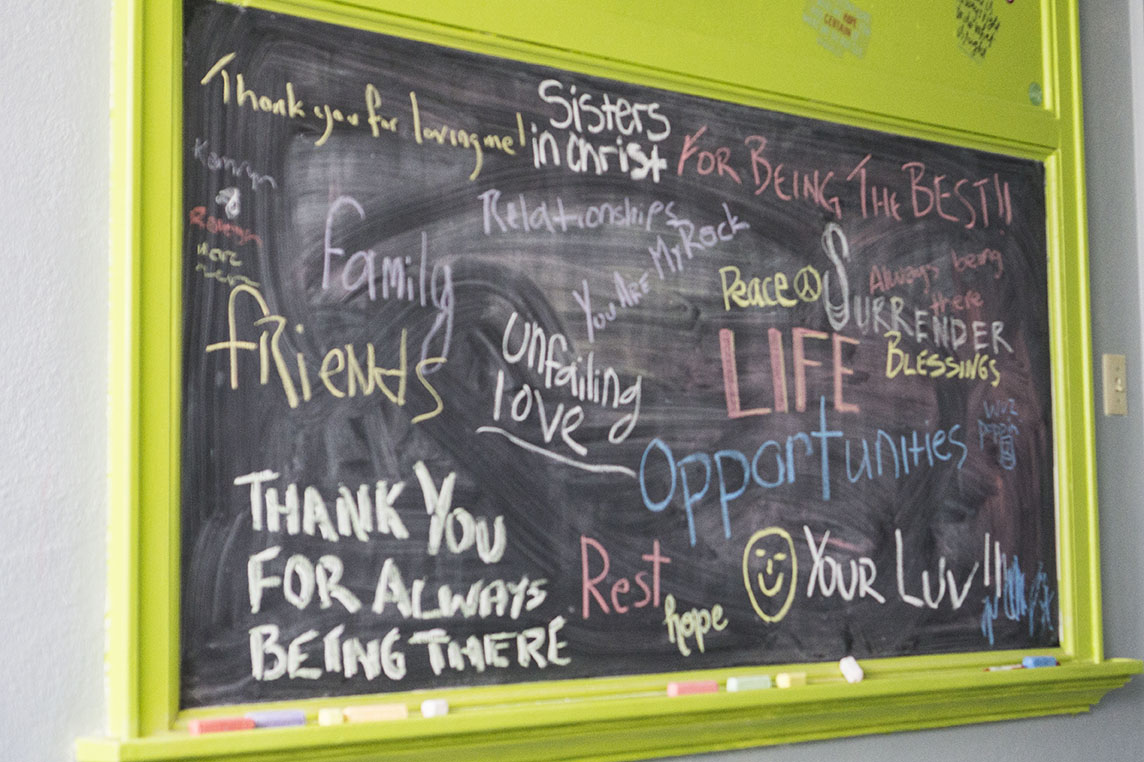 Thank you for loving me!
Sisters
in christ
FOR BEING THE BEST!!
Kamryn
&
Relationships
Family
You ARE My Rock
Peace
SURRENDER
Always being
there
BLESSINGS
friends
unfailing
love
LIFE
Opportunities
THANK YOU
FOR ALWAYS
BEING THERE
Rest
hope
YOUR LUV!!